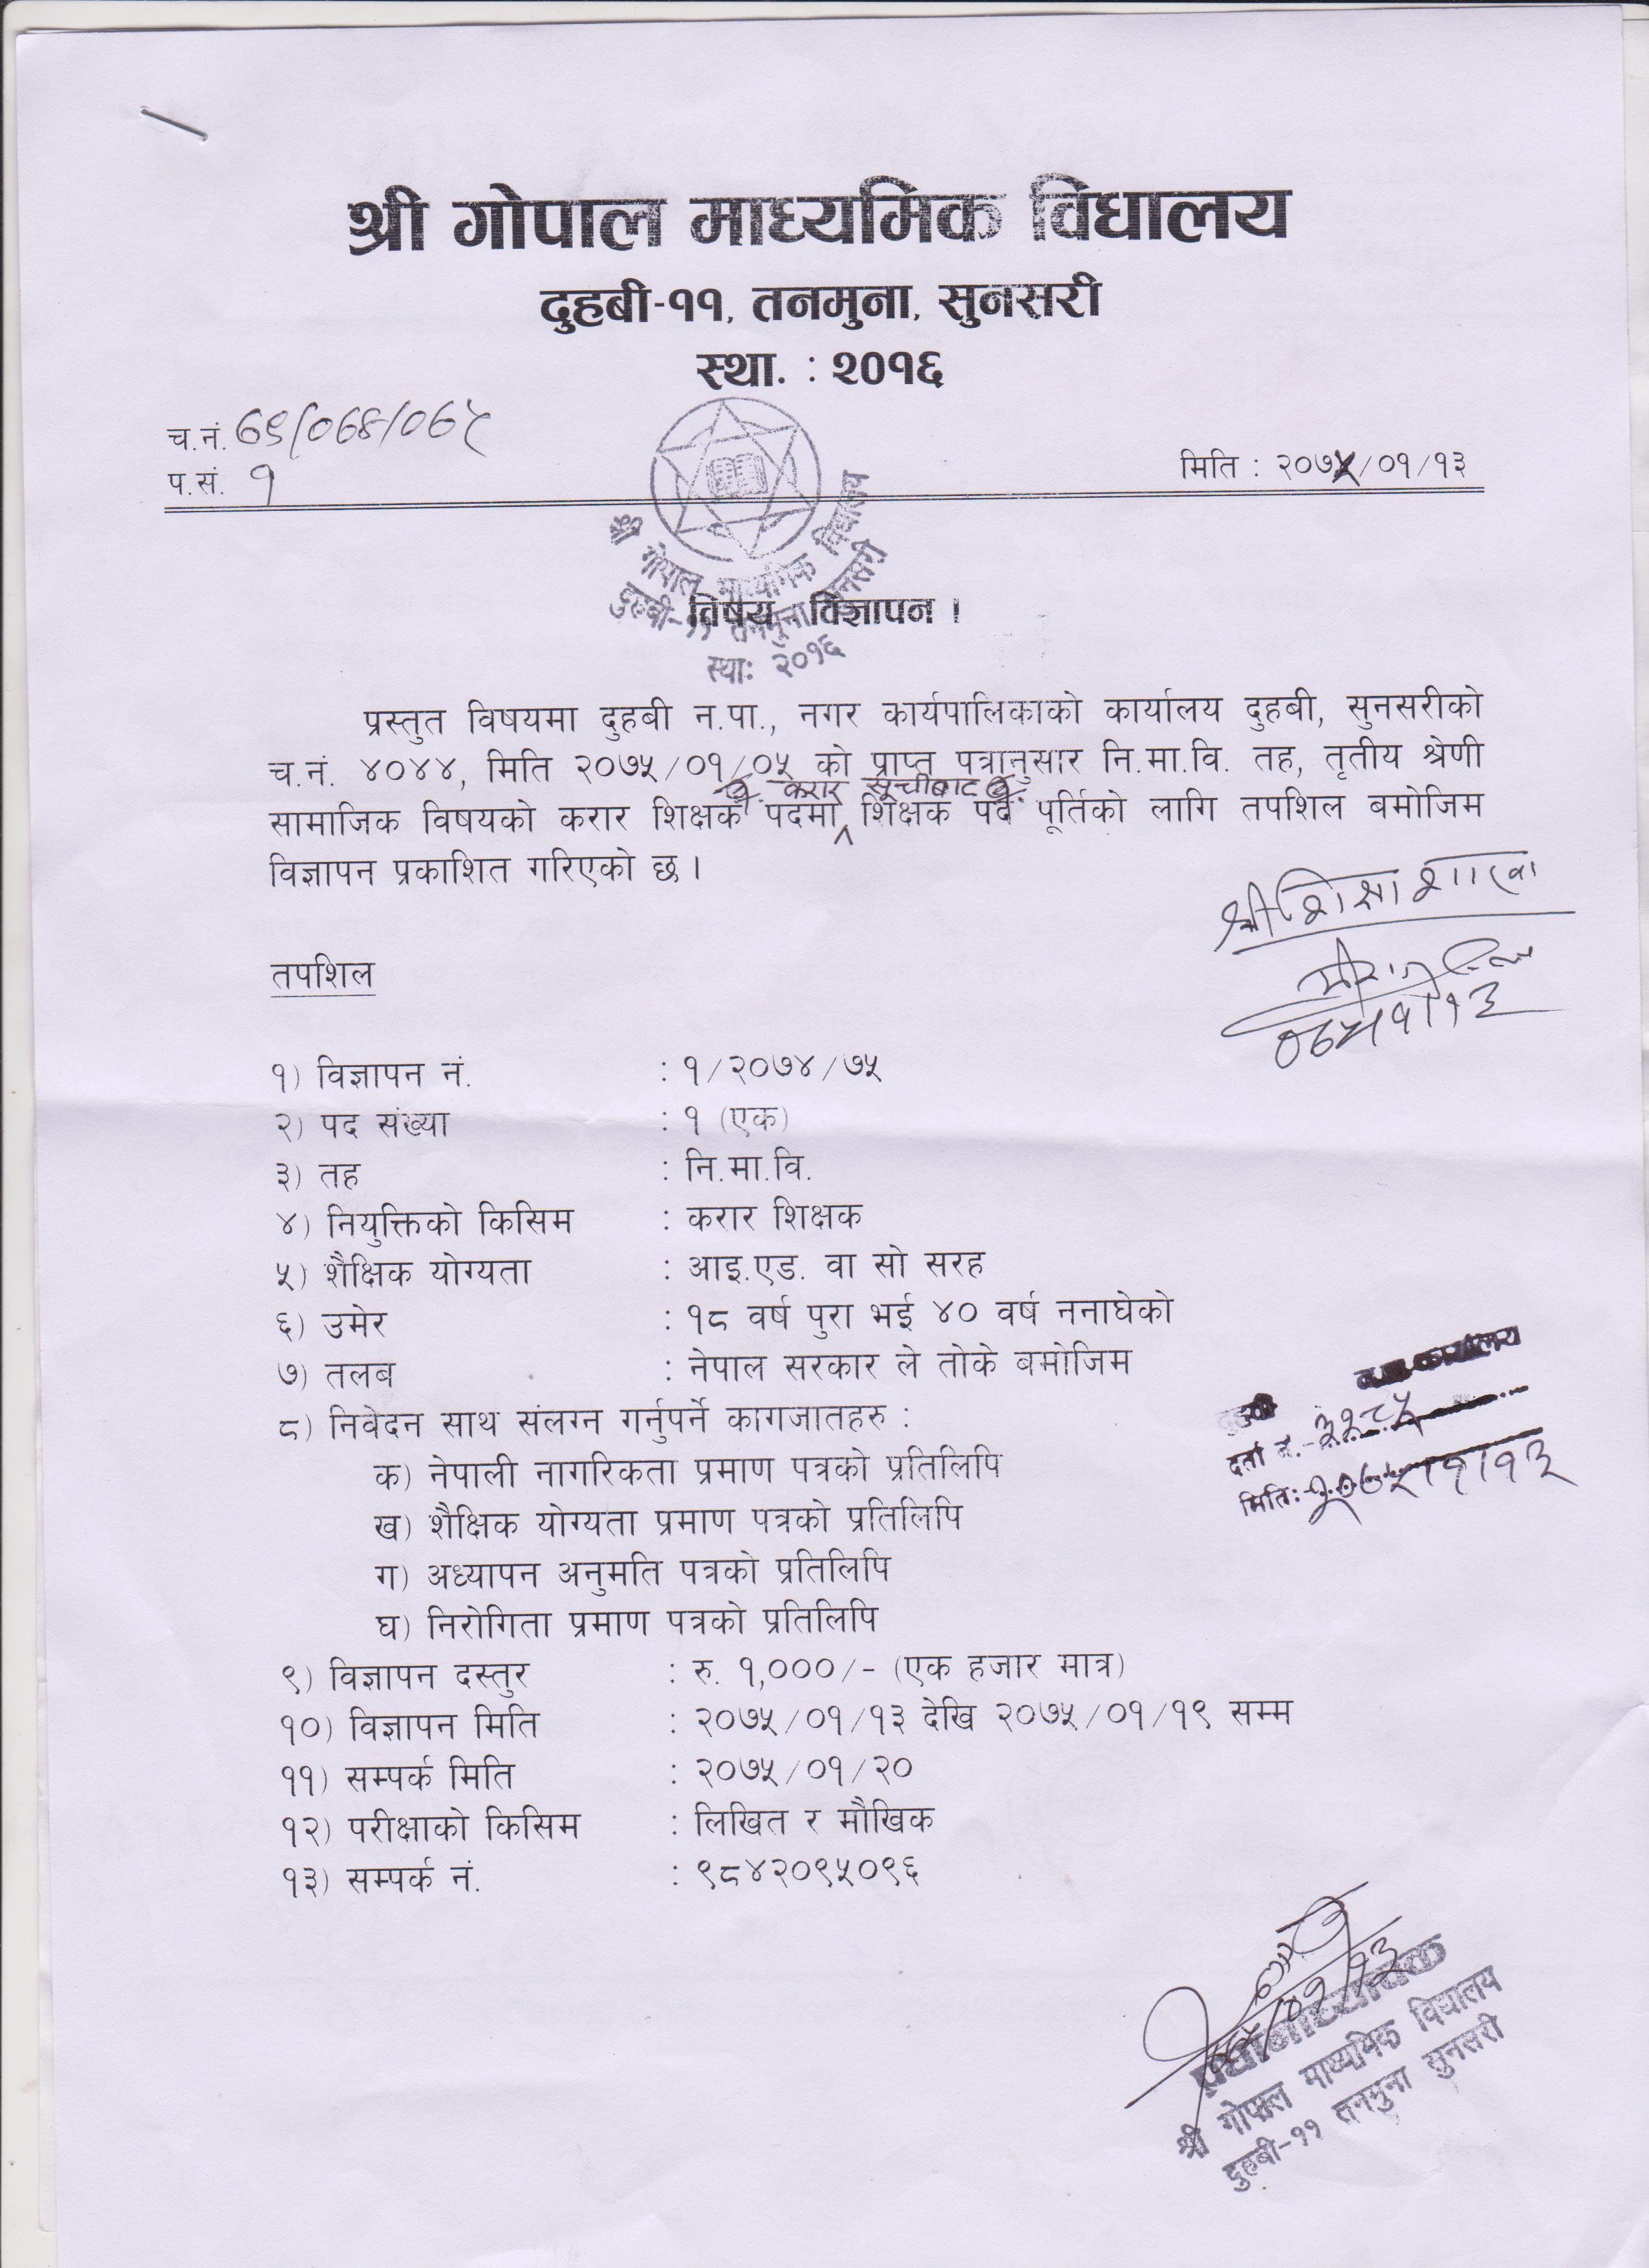 श्री गोपाल माध्यमिक विद्यालय
दुहबी-११, तनमुना, सुनसरी
स्था. : २०१६
च.नं. ७९/०७४/०७५
प.सं. १
मिति : २०७५/०१/१३
श्री गोपाल माध्यमिक विद्यालय
दुहबी-११ तनमुना सुनसरी
स्था: २०१६
विषय विज्ञापन ।
प्रस्तुत विषयमा दुहबी न.पा., नगर कार्यपालिकाको कार्यालय दुहबी, सुनसरीको
च.नं. ४०४४, मिति २०७५/०१/०५ को प्राप्त पत्रानुसार नि.मा.वि. तह, तृतीय श्रेणी
करार सूचीबाट
सामाजिक विषयको करार शिक्षक पदमा शिक्षक पद पूर्तिको लागि तपशिल बमोजिम
विज्ञापन प्रकाशित गरिएको छ ।
श्री शिक्षा शाखा
तपशिल
१) विज्ञापन नं. : १/२०७४/७५
२) पद संख्या : १ (एक)
३) तह : नि.मा.वि.
४) नियुक्तिको किसिम : करार शिक्षक
५) शैक्षिक योग्यता : आइ.एड. वा सो सरह
६) उमेर : १८ वर्ष पुरा भई ४० वर्ष ननाघेको
७) तलब : नेपाल सरकार ले तोके बमोजिम
८) निवेदन साथ संलग्न गर्नुपर्ने कागजातहरु :
क) नेपाली नागरिकता प्रमाण पत्रको प्रतिलिपि
ख) शैक्षिक योग्यता प्रमाण पत्रको प्रतिलिपि
ग) अध्यापन अनुमति पत्रको प्रतिलिपि
घ) निरोगिता प्रमाण पत्रको प्रतिलिपि
दर्ता नं.
मिति: २०७५।१।१३
९) विज्ञापन दस्तुर : रु. १,०००/- (एक हजार मात्र)
१०) विज्ञापन मिति : २०७५/०१/१३ देखि २०७५/०१/१९ सम्म
११) सम्पर्क मिति : २०७५/०१/२०
१२) परीक्षाको किसिम : लिखित र मौखिक
१३) सम्पर्क नं. : ९८४२०९५०९६
प्रधानाध्यापक
श्री गोपाल माध्यमिक विद्यालय
दुहबी-११ तनमुना सुनसरी